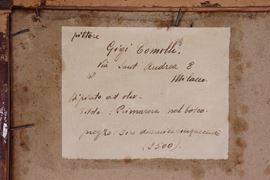 pittore
Gigi Comolli
Via Sant' Andrea 8
Milano
Dipinto ad olio
titolo: Primavera nel bosco
prezzo: lire
(2500)